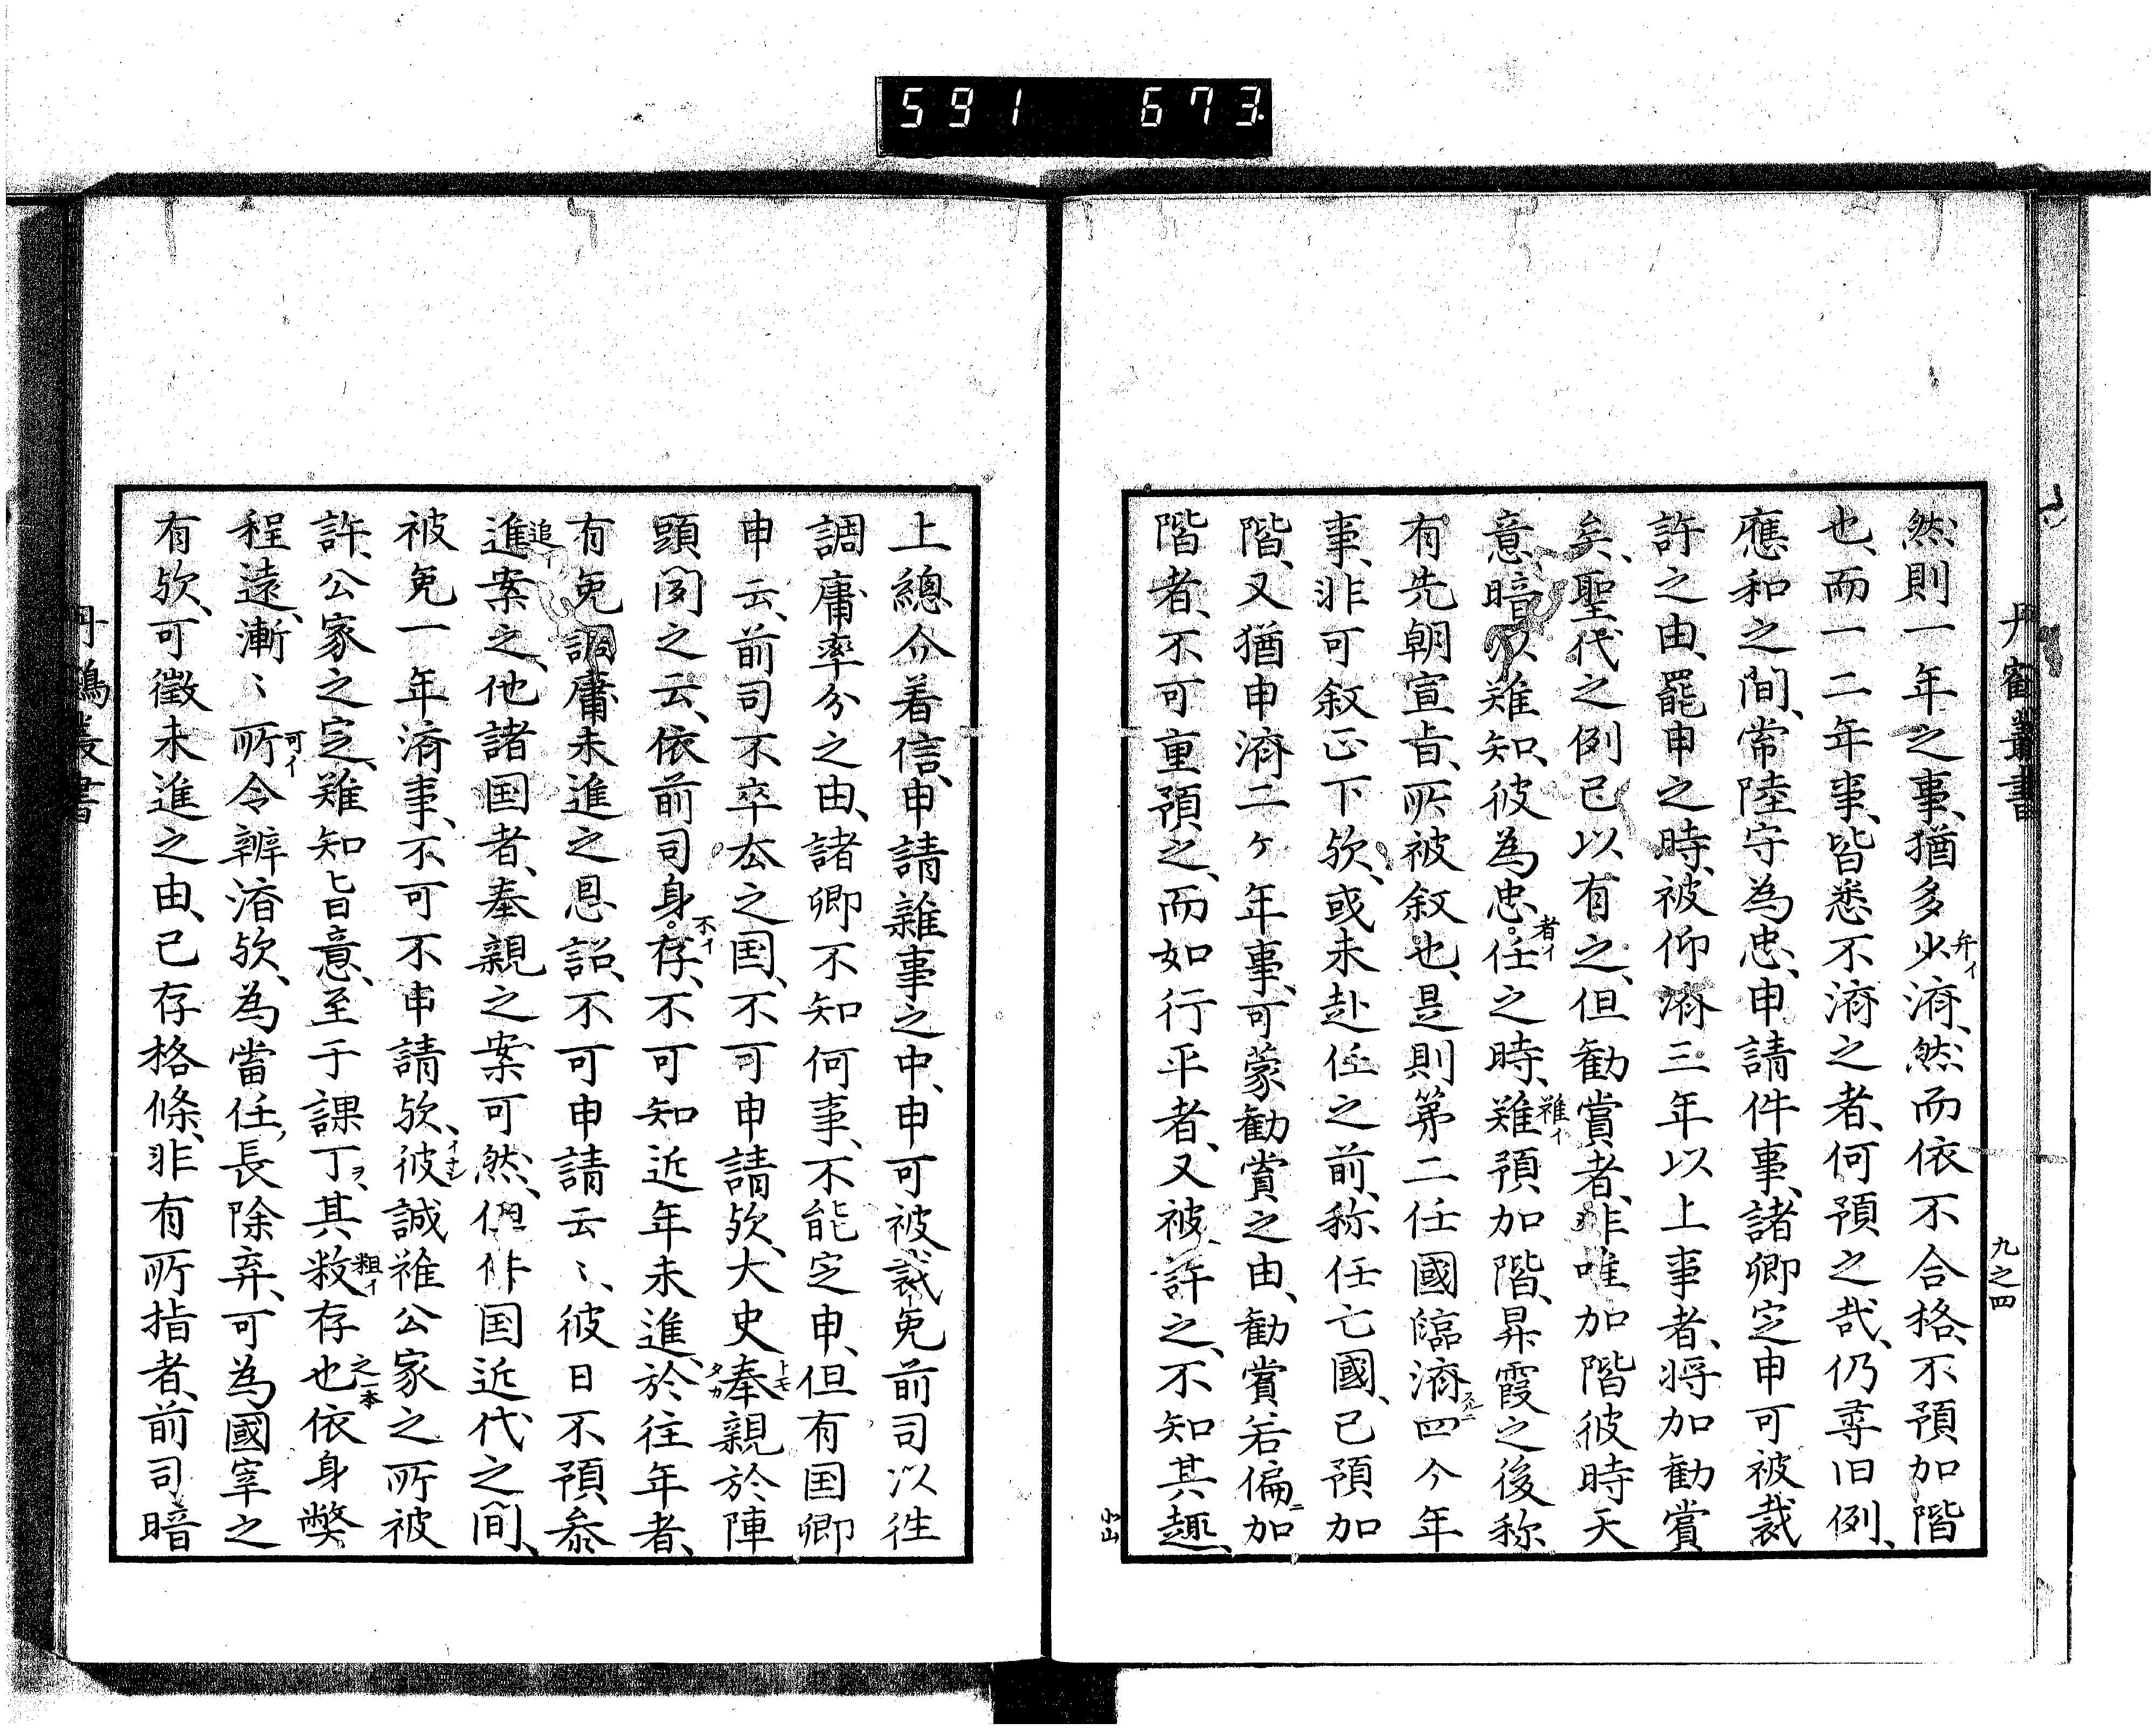 591 673
丹鶴叢書
九之四
然則一年之事、猶多少済、然而依不合格、不預加階
弁イ
也、而一二年事、皆悉不済之者、何預之哉、仍尋旧例、
應和之間、常陸守為忠、申請件事、諸卿定申可被裁
許之由、罷申之時、被仰済三年以上事者、将加勧賞
矣、聖代之例已以有之、但勧賞者、非唯加階彼時天
意、暗以難知、彼為忠。任之時、難預加階、昇霞之後称
者イ
雖イ
有先朝宣旨、所被叙也、是則第二任國臨済四今年
事、非可叙正下欤、或未赴任之前、称任亡國、已預加
階、又猶申済二ヶ年事、可蒙勧賞之由、勧賞若偏加
ニ
階者、不可重預之、而如行平者、又被許之、不知其趣、
小山
上總介着信、申請雑事之中、申可被裁免前司以往
調庸率分之由、諸卿不知何事、不能定申、但有国卿
申云、前司不卒去之国、不可申請欤、大史奉親於陣
頭閣之云、依前司身。存、不可知近年未進、於往年者、
不イ
有免調庸未進之恩詔、不可申請云〻、彼日不預叅
進案之、他諸国者、奉親之案可然、但件国近代之間、
追イ
被免一年済事、不可不申請欤、彼誠雖公家之所被
イナシ
許、公家之定、難知旨意、至于課丁、其救存也依身弊
ヲ
粗イ
之本
程遠、漸〻所令辨済欤、為當任、長除弃、可為國宰之
可イ
有欤、可徴未進之由、已存格條、非有所指者、前司暗
丹鶴叢書